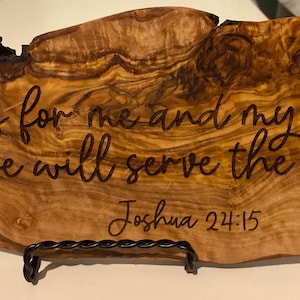 for me and my
will serve the
Joshua 24:15